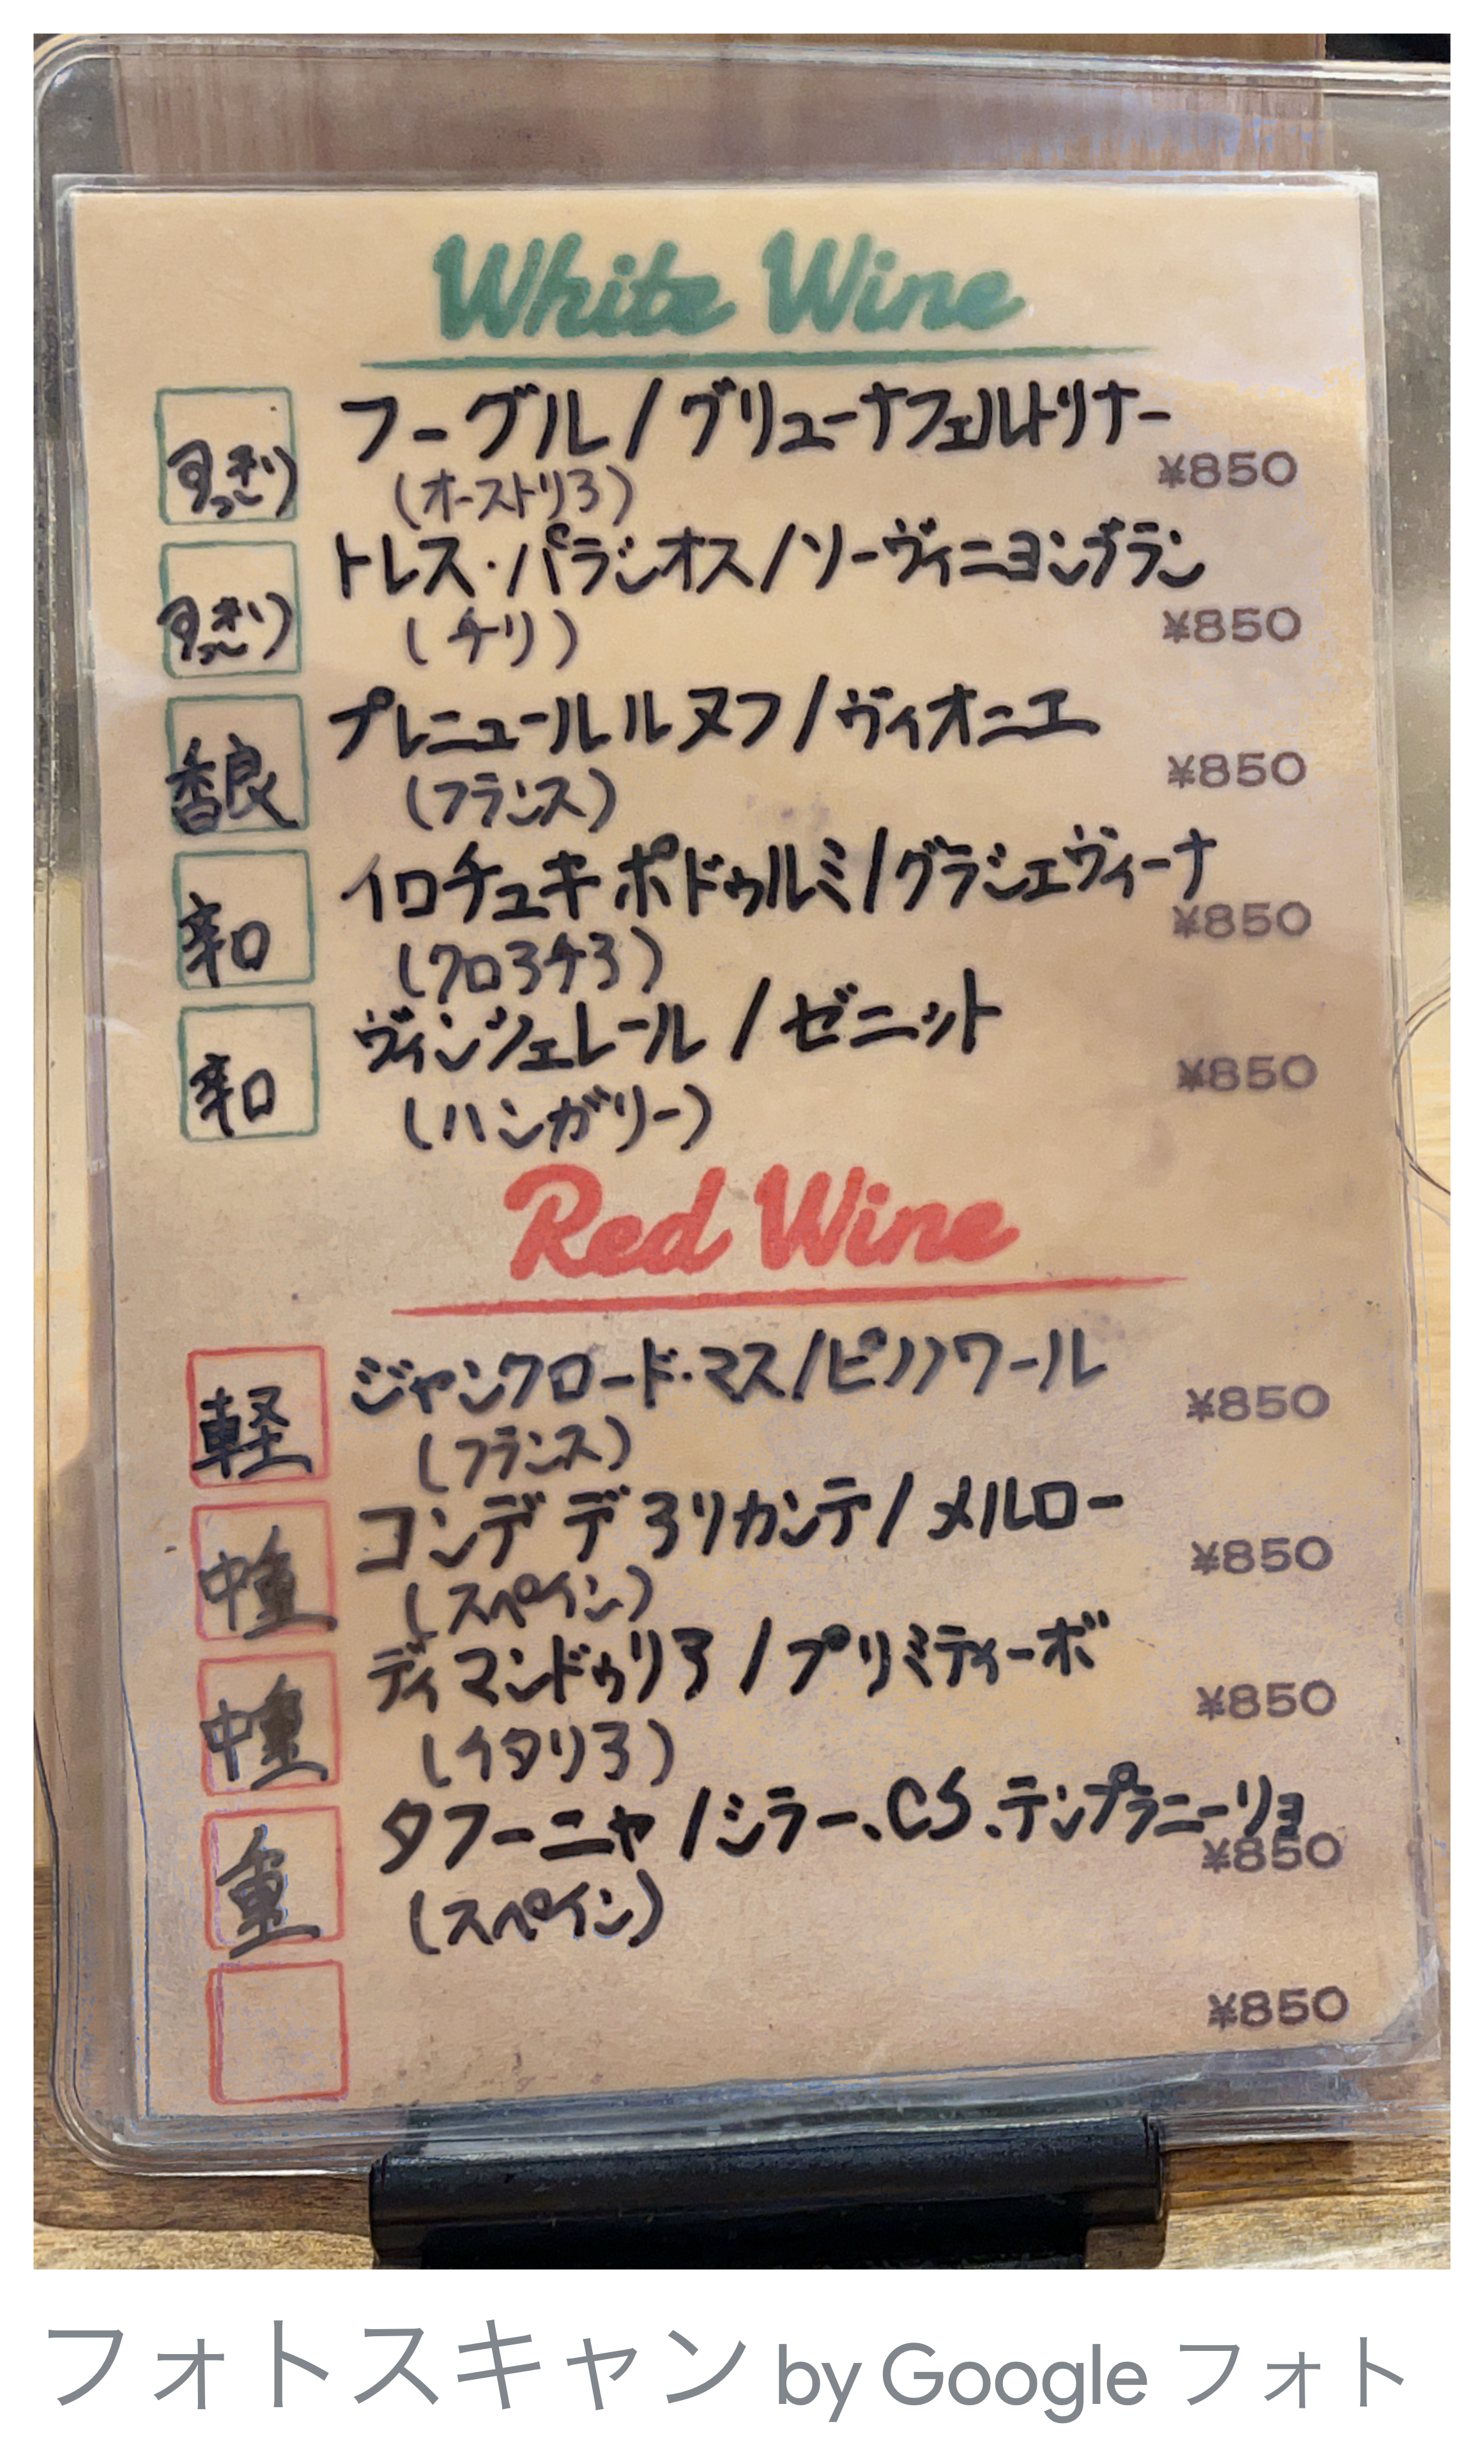 White Wine
すっきり
フーグル/グリューナフェルトリナー
¥850
(オーストリア)
すっきり
トレス・パラシオス/ソーヴィニヨンブラン
¥850
(チリ)
香良
プレニュールルヌフ/ヴィオニエ
¥850
(フランス)
辛口
イロチュキ ポドゥルミ/グラシェヴィーナ
¥850
(クロアチア)
辛口
ヴィンツェレール/ゼニット
¥850
(ハンガリー)
Red Wine
軽
ジャンクロード・マス/ピノノワール
¥850
(フランス)
中重
コンデ デ アリカンテ/メルロー
¥850
(スペイン)
中重
ディマンドゥリア/プリミティーボ
¥850
(イタリア)
重
タフーニャ/シラー、CS、テンプラニーリョ
¥850
(スペイン)
¥850
フォトスキャン by Google フォト